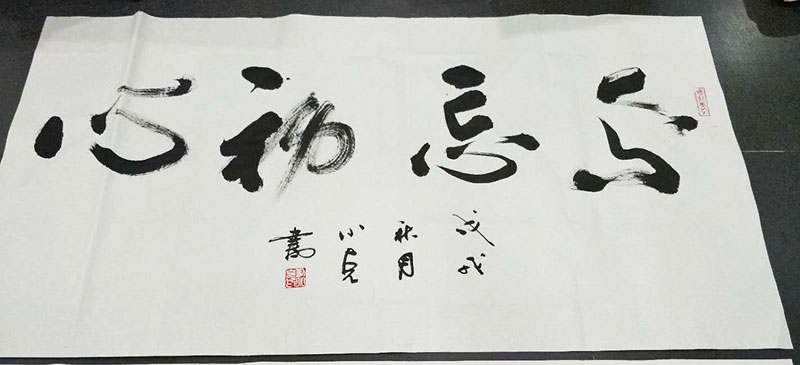 不忘初心
戊戌
秋月
小
書